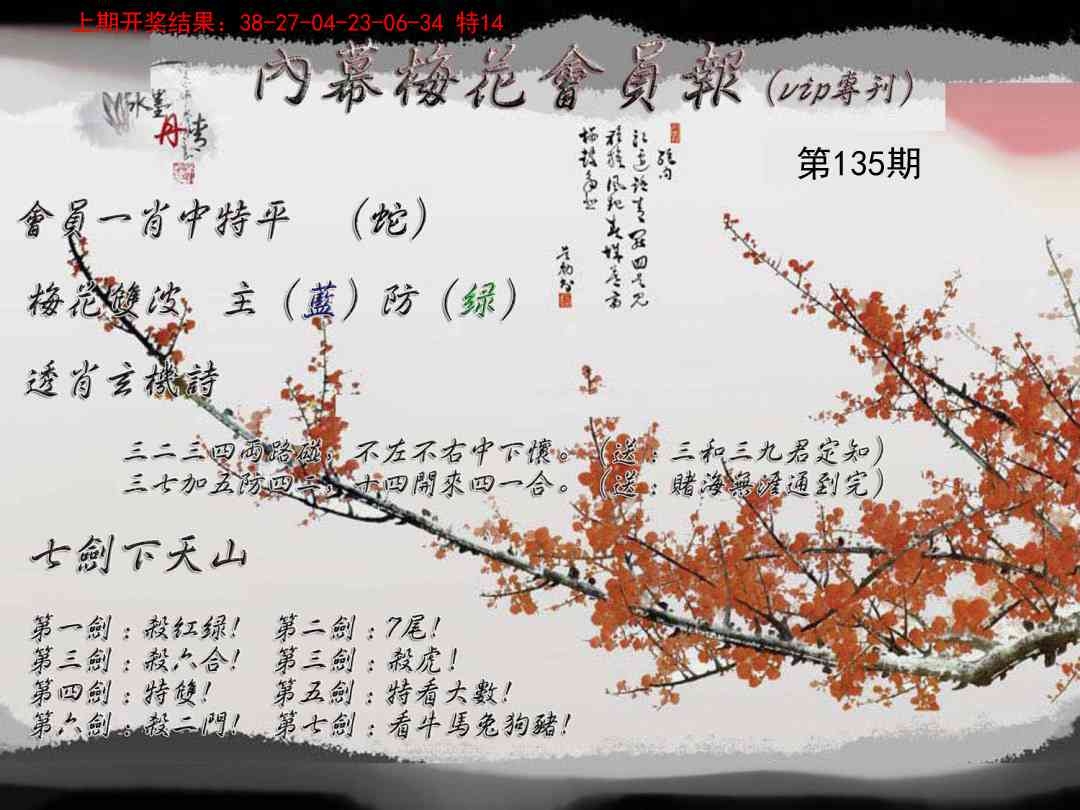 上期开奖结果：38-27-04-23-06-34 特14
內幕梅花會員報（vip專刊）
水墨
丹青
第135期
會員一肖中特平　（蛇）
梅花雙波　主（藍）防（绿）
透肖玄機詩
三二三四両路碰，不左不右中下懷。（送：三和三九君定知）
三七加五防四二，十四開來四一合。（送：賭海無涯通到完）
七劍下天山
第一劍：殺红绿！　第二劍：7尾！
第三劍：殺六合！　第三劍：殺虎！
第四劍：特雙！　第五劍：特看大數！
第六劍：殺二門！　第七劍：看牛馬兔狗豬！